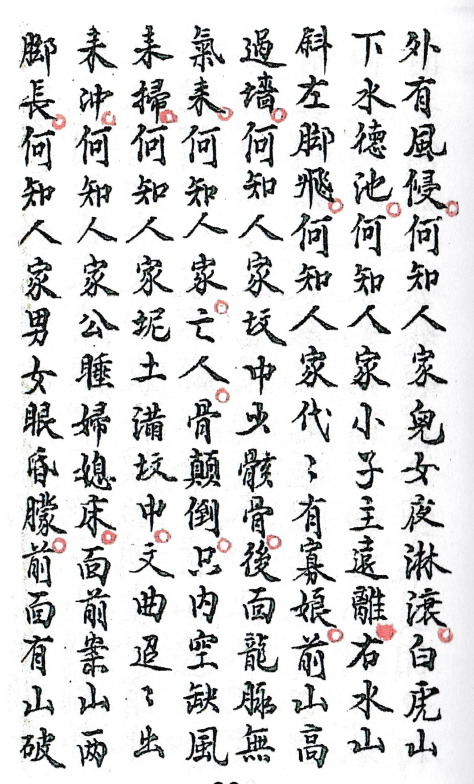 外有風侵何知人家兒女夜淋滾白虎山
下水德池何知人家小子主遠離右水山
斜左脚飛何知人家代〻有寡娘前山高
過墻何知人家坟中少骸骨後面龍脉無
氣来何知人家亡人骨顛倒只内空缺風
来掃何知人家坭土满坟中文曲迢〻出
来沖何知人家公睡婦媳床面前案山两
脚長何知人家男女眼昏朦前面有山破